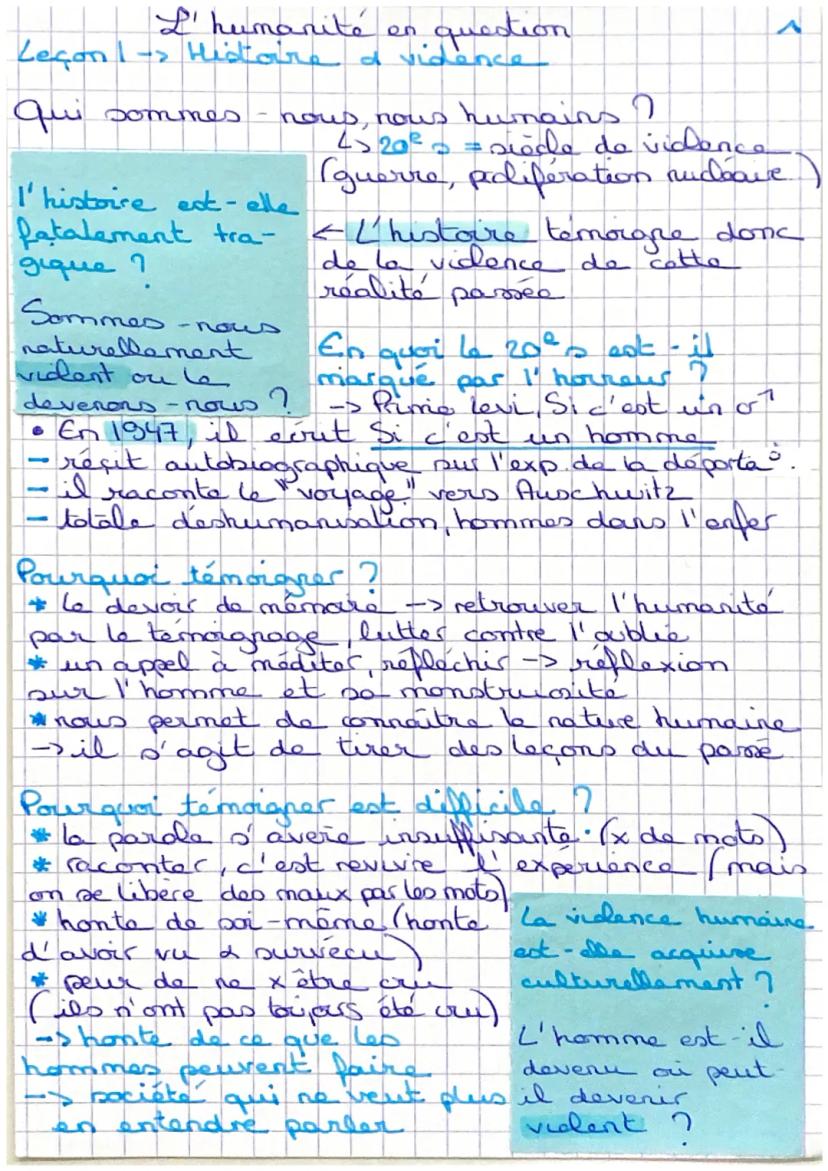 L'humanité en question
1
Leçon 1 -> Histoire & violence
Qui sommes-nous, nous humains ?
↳ 20e s = siècle de violence
(guerre, prolifération nucléaire)
l'histoire est-elle
fatalement tra-
gique ?
Sommes-nous
naturellement
violent ou le
devenons-nous ?
← L'histoire témoigne donc
de la violence de cette
réalité passée
En quoi le 20e s est-il
marqué par l'horreur ?
-> Primo Levi, Si c'est un ♂
• En 1947, il écrit Si c'est un homme
- récit autobiographique sur l'exp. de la déporta°.
- il raconte le "voyage" vers Auschwitz
- totale déshumanisation, hommes dans l'enfer
Pourquoi témoigner ?
* le devoir de mémoire -> retrouver l'humanité
par le témoignage, lutter contre l'oublie
* un appel à méditer, réfléchir -> réflexion
sur l'homme et sa monstruosité
* nous permet de connaître la nature humaine
-> il s'agit de tirer des leçons du passé
Pourquoi témoigner est difficile ?
* la parole s'avère insuffisante. (x de mots)
* raconter, c'est revivre l'expérience (mais
on se libère des maux par les mots)
* honte de soi-même (honte
d'avoir vu & survécu)
* peur de ne x être cru
(ils n'ont pas toujours été cru)
-> honte de ce que les
hommes peuvent faire
-> société qui ne veut plus
en entendre parler
La violence humaine
est-elle acquise
culturellement ?
L'homme est-il
devenu où peut-
il devenir
violent ?